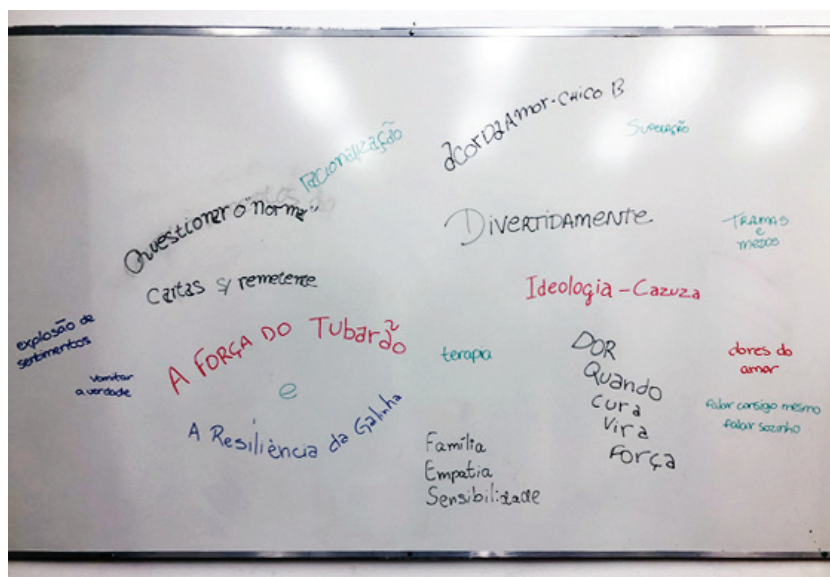 acorda Amor - CHICO B
racionalização
Superação
Questionar o "norma"
DIVERTIDAMENTE
TRAMAS
e
medos
cartas s/ remetente
Ideologia - Cazuza
explosão de
sentimentos
A FORÇA DO Tubarão
e
A Resiliência da Galinha
vomitar
a verdade
terapia
DOR
Quando
cura
vira
força
dores do
amor
falar consigo mesmo
falar sozinho
Família
Empatia
Sensibilidade